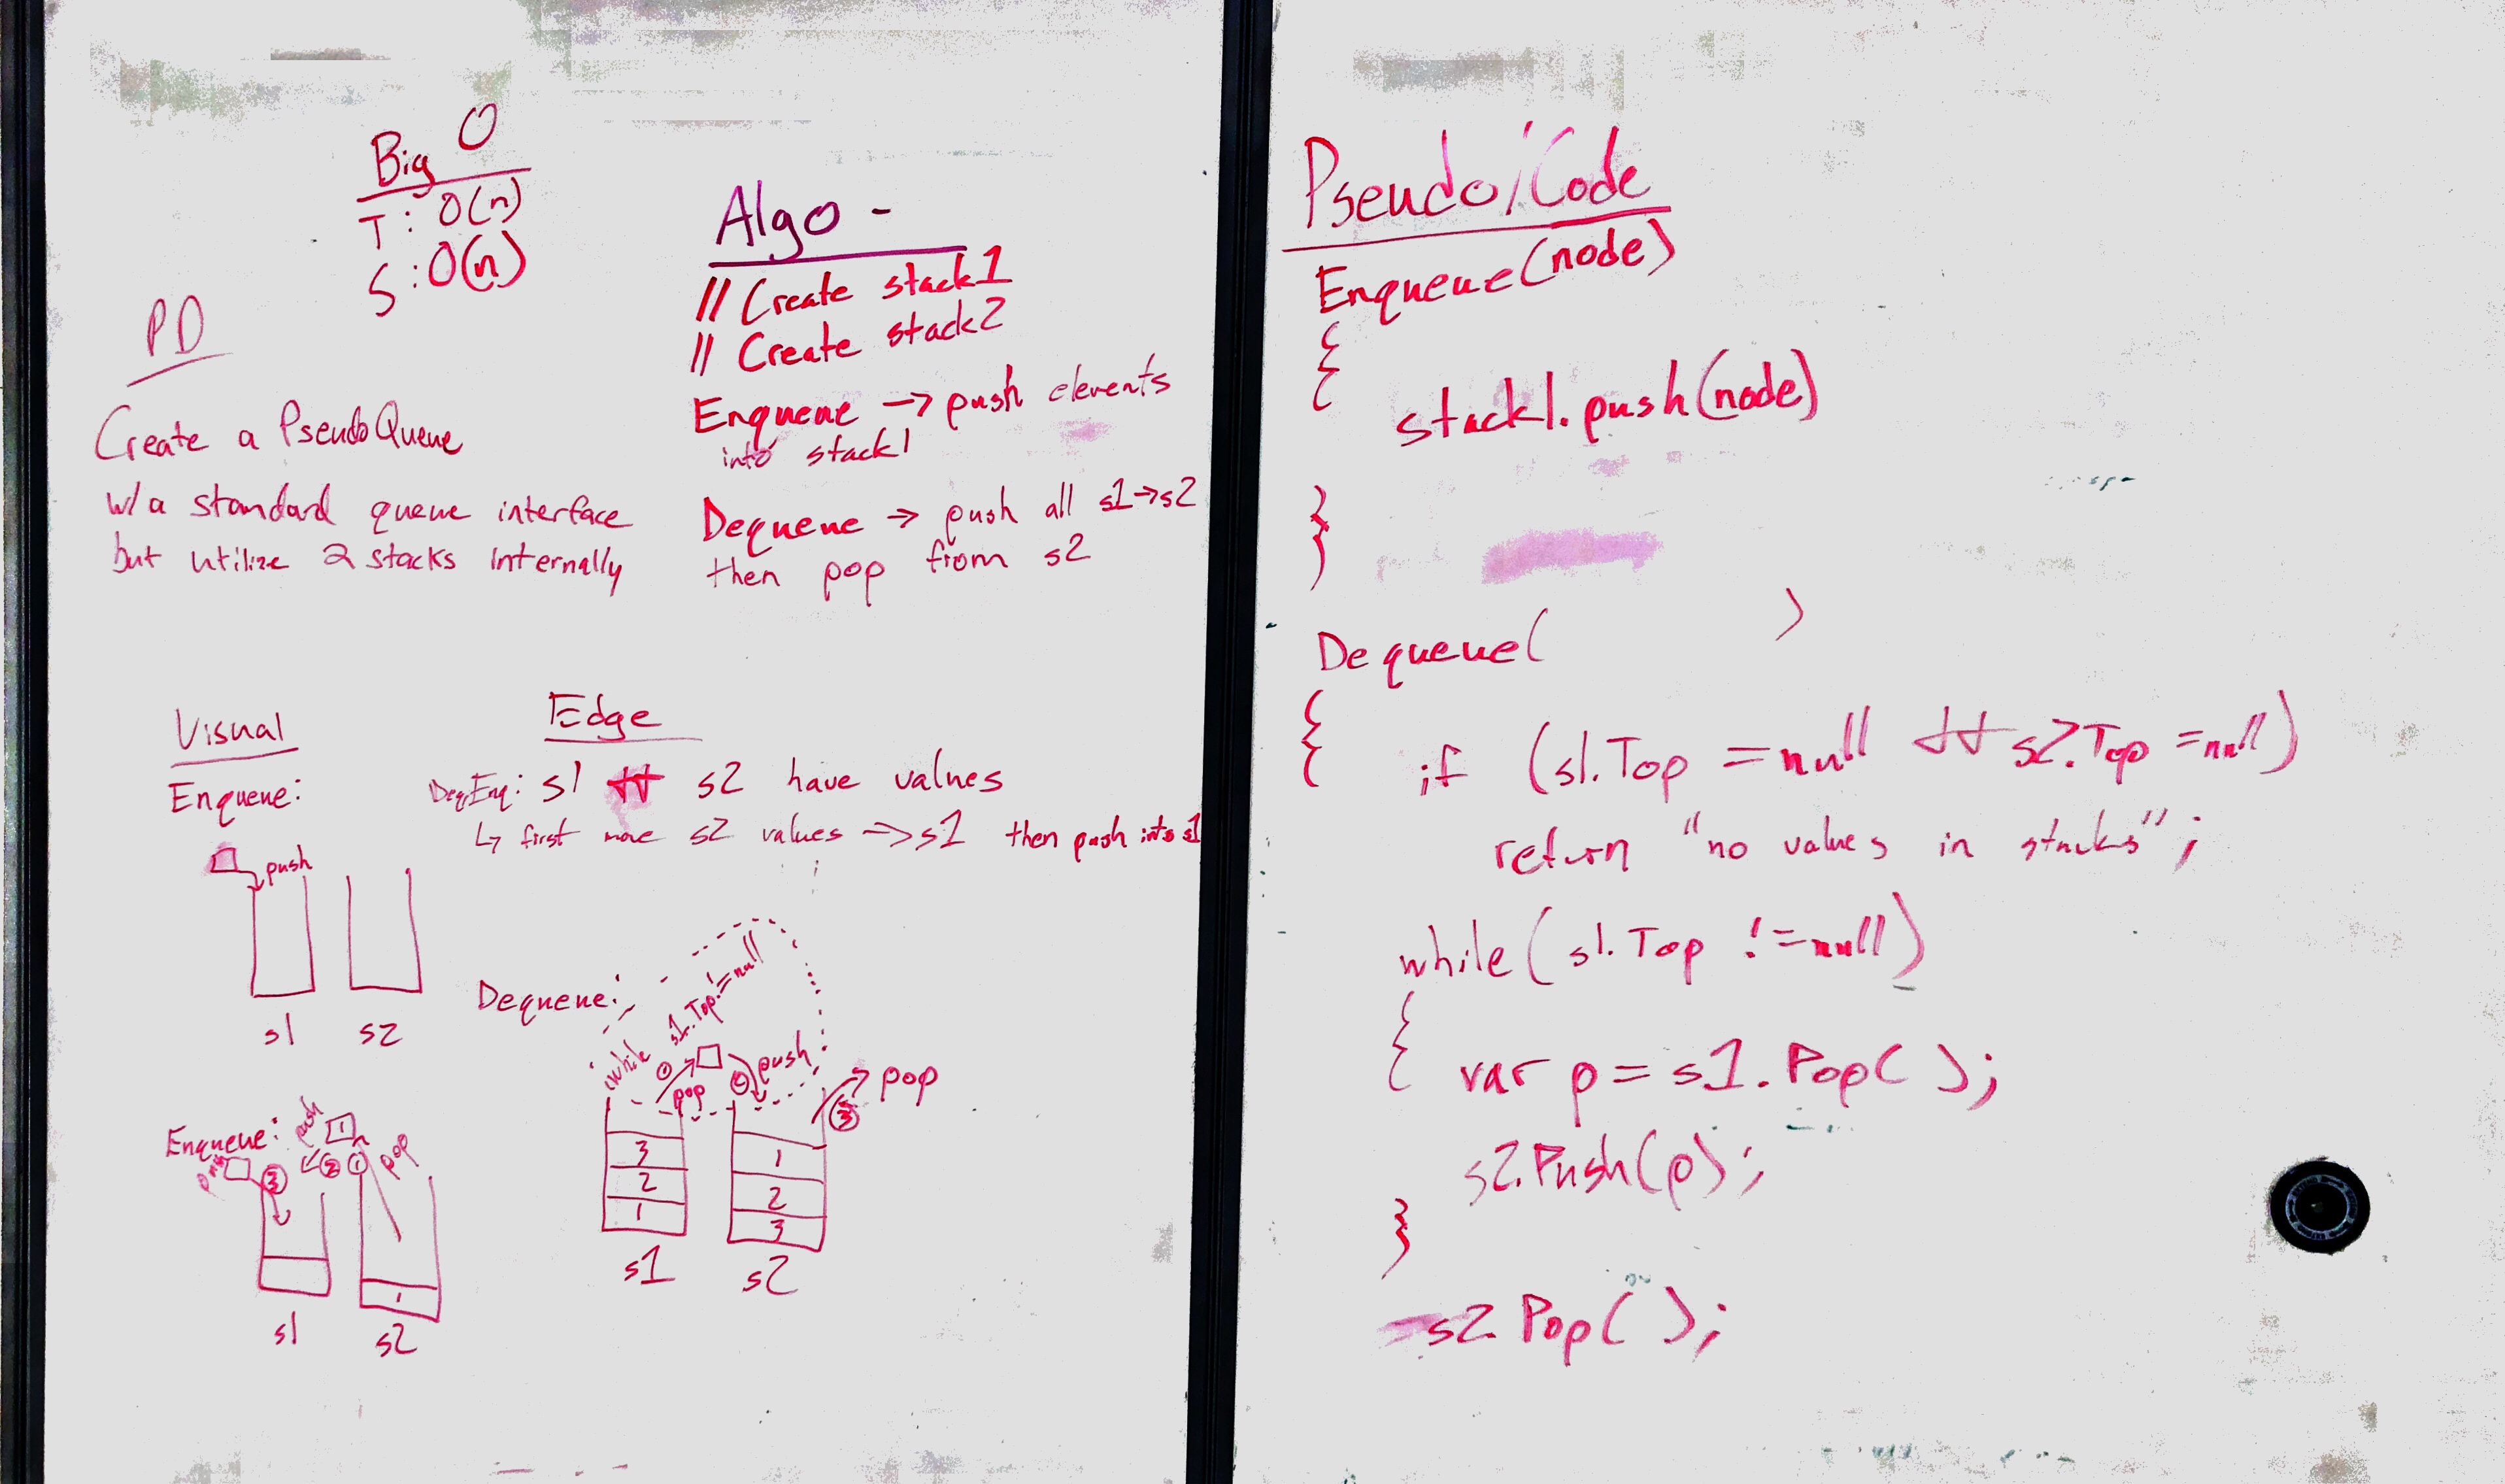 Big O
T: O(n)
S: O(n)
PD
Create a PseudoQueue
w/a standard queue interface
but utilize 2 stacks internally
Algo -
// Create stack1
// Create stack2
Enqueue → push elements
into stack1
Dequeue → push all s1→s2
then pop from s2
Visual
Enqueue:
push
s1 s2
Enqueue:
push 1
3 2 1 pop
1
s1 s2
Edge
Enq: s1 && s2 have values
↳ first move s2 values => s1 then push into s1
Dequeue:
while s1.Top != null
1 pop 2 push
3 pop
3 1
2 2
1 3
s1 s2
Pseudo/Code
Enqueue(node)
{
stack1.push(node)
}
Dequeue( )
{ if (s1.Top = null && s2.Top = null)
return "no values in stacks";
while(s1.Top != null)
{ var p = s1.Pop( );
s2.Push(p);
}
s2.Pop( );